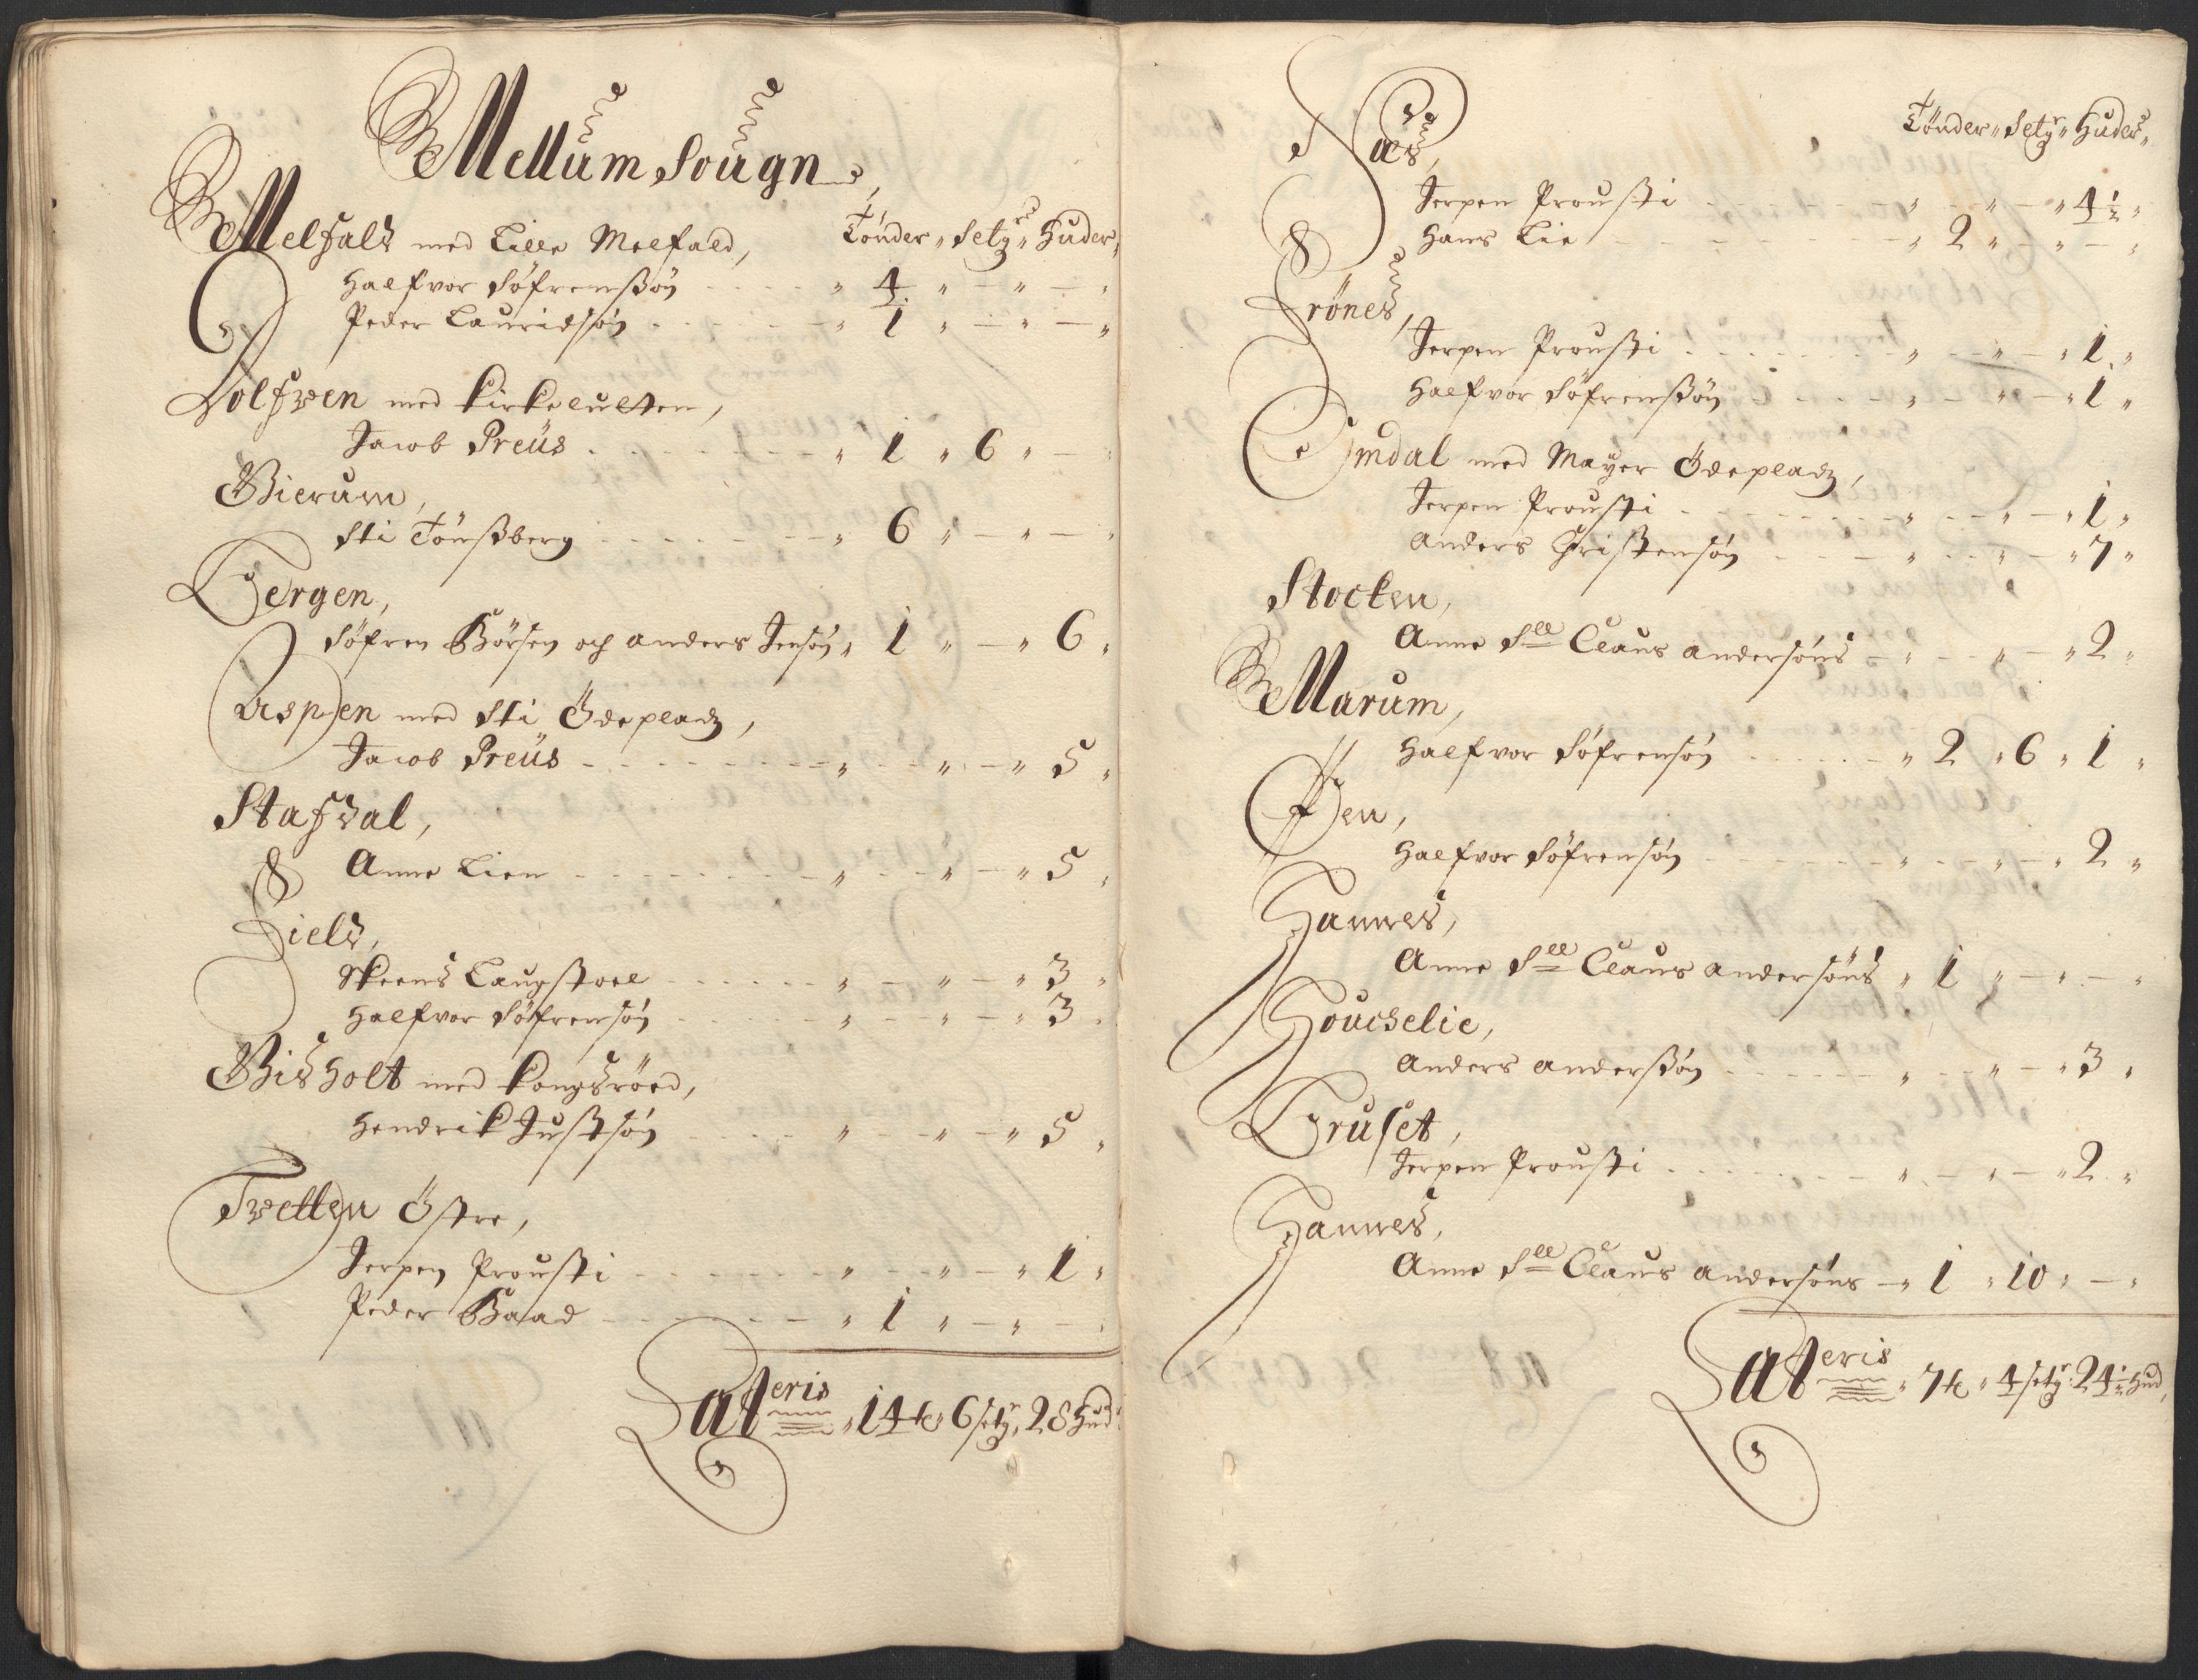 Mellum Sougn,
Melfald med Lille Melfald, Tönder " Setgr " Huder,
Halfvor Söfrenßøn " 4 " — " — "
Peder Lauridsøn " 1 " — " — "
Dolfven med Kirkelulten,
Jacob Preüs " 1 " 6 " —
Bierum,
Sti Tönßberg " 6 " — " — "
Bergen,
Söfren Börsen och Anders Jensøn " 1 " — " 6 "
Aspen med Sti Ödepladz,
Jacob Preüs " — " — " 5 "
Stafdal,
Anne Lien " — " — " 5 "
Field,
Skeens Laugstoel " — " — " 3 "
Halfvor Söfrensøn " — " — " 3 "
Bisholt med Kongsröed,
Hendrik Justsøn " — " — " 5 "
Tvetten Östre,
Jerpen Prousti " — " — " 1 "
Peder Baad " 1 " — " — "
Lateris " 14 t " 6 setgr, 28 Hud
Tönder " Setgr " Huder "
Næs,
Jerpen Prousti " — " — " 4½ "
Hans Lie " 2 " — " — "
Grönes,
Jerpen Prousti " — " — " 1 "
Halfvor Söfrenßøn " — " — " 1 "
Omdal med Mayer Ödepladz,
Jerpen Prousti " — " — " 1 "
Anders Christensøn " — " — " 7 "
Stocken,
Anne Sll Claus Andersøns " — " — " 2 "
Marum,
Halfvor Söfrensøn " 2 " 6 " 1 "
Øen,
Halfvor Söfrensøn " — " — " 2 "
Haunes,
Anne Sll Claus Andersøns " 1 " — " — "
Houchelie,
Anders Anderßøn " — " — " 3 "
Gruset,
Jerpen Prousti " — " — " 2 "
Haunes,
Anne Sll Claus Andersøns — " 1 " 10 " — "
Lateris " 7 t " 4 setgr 24½ Hud,